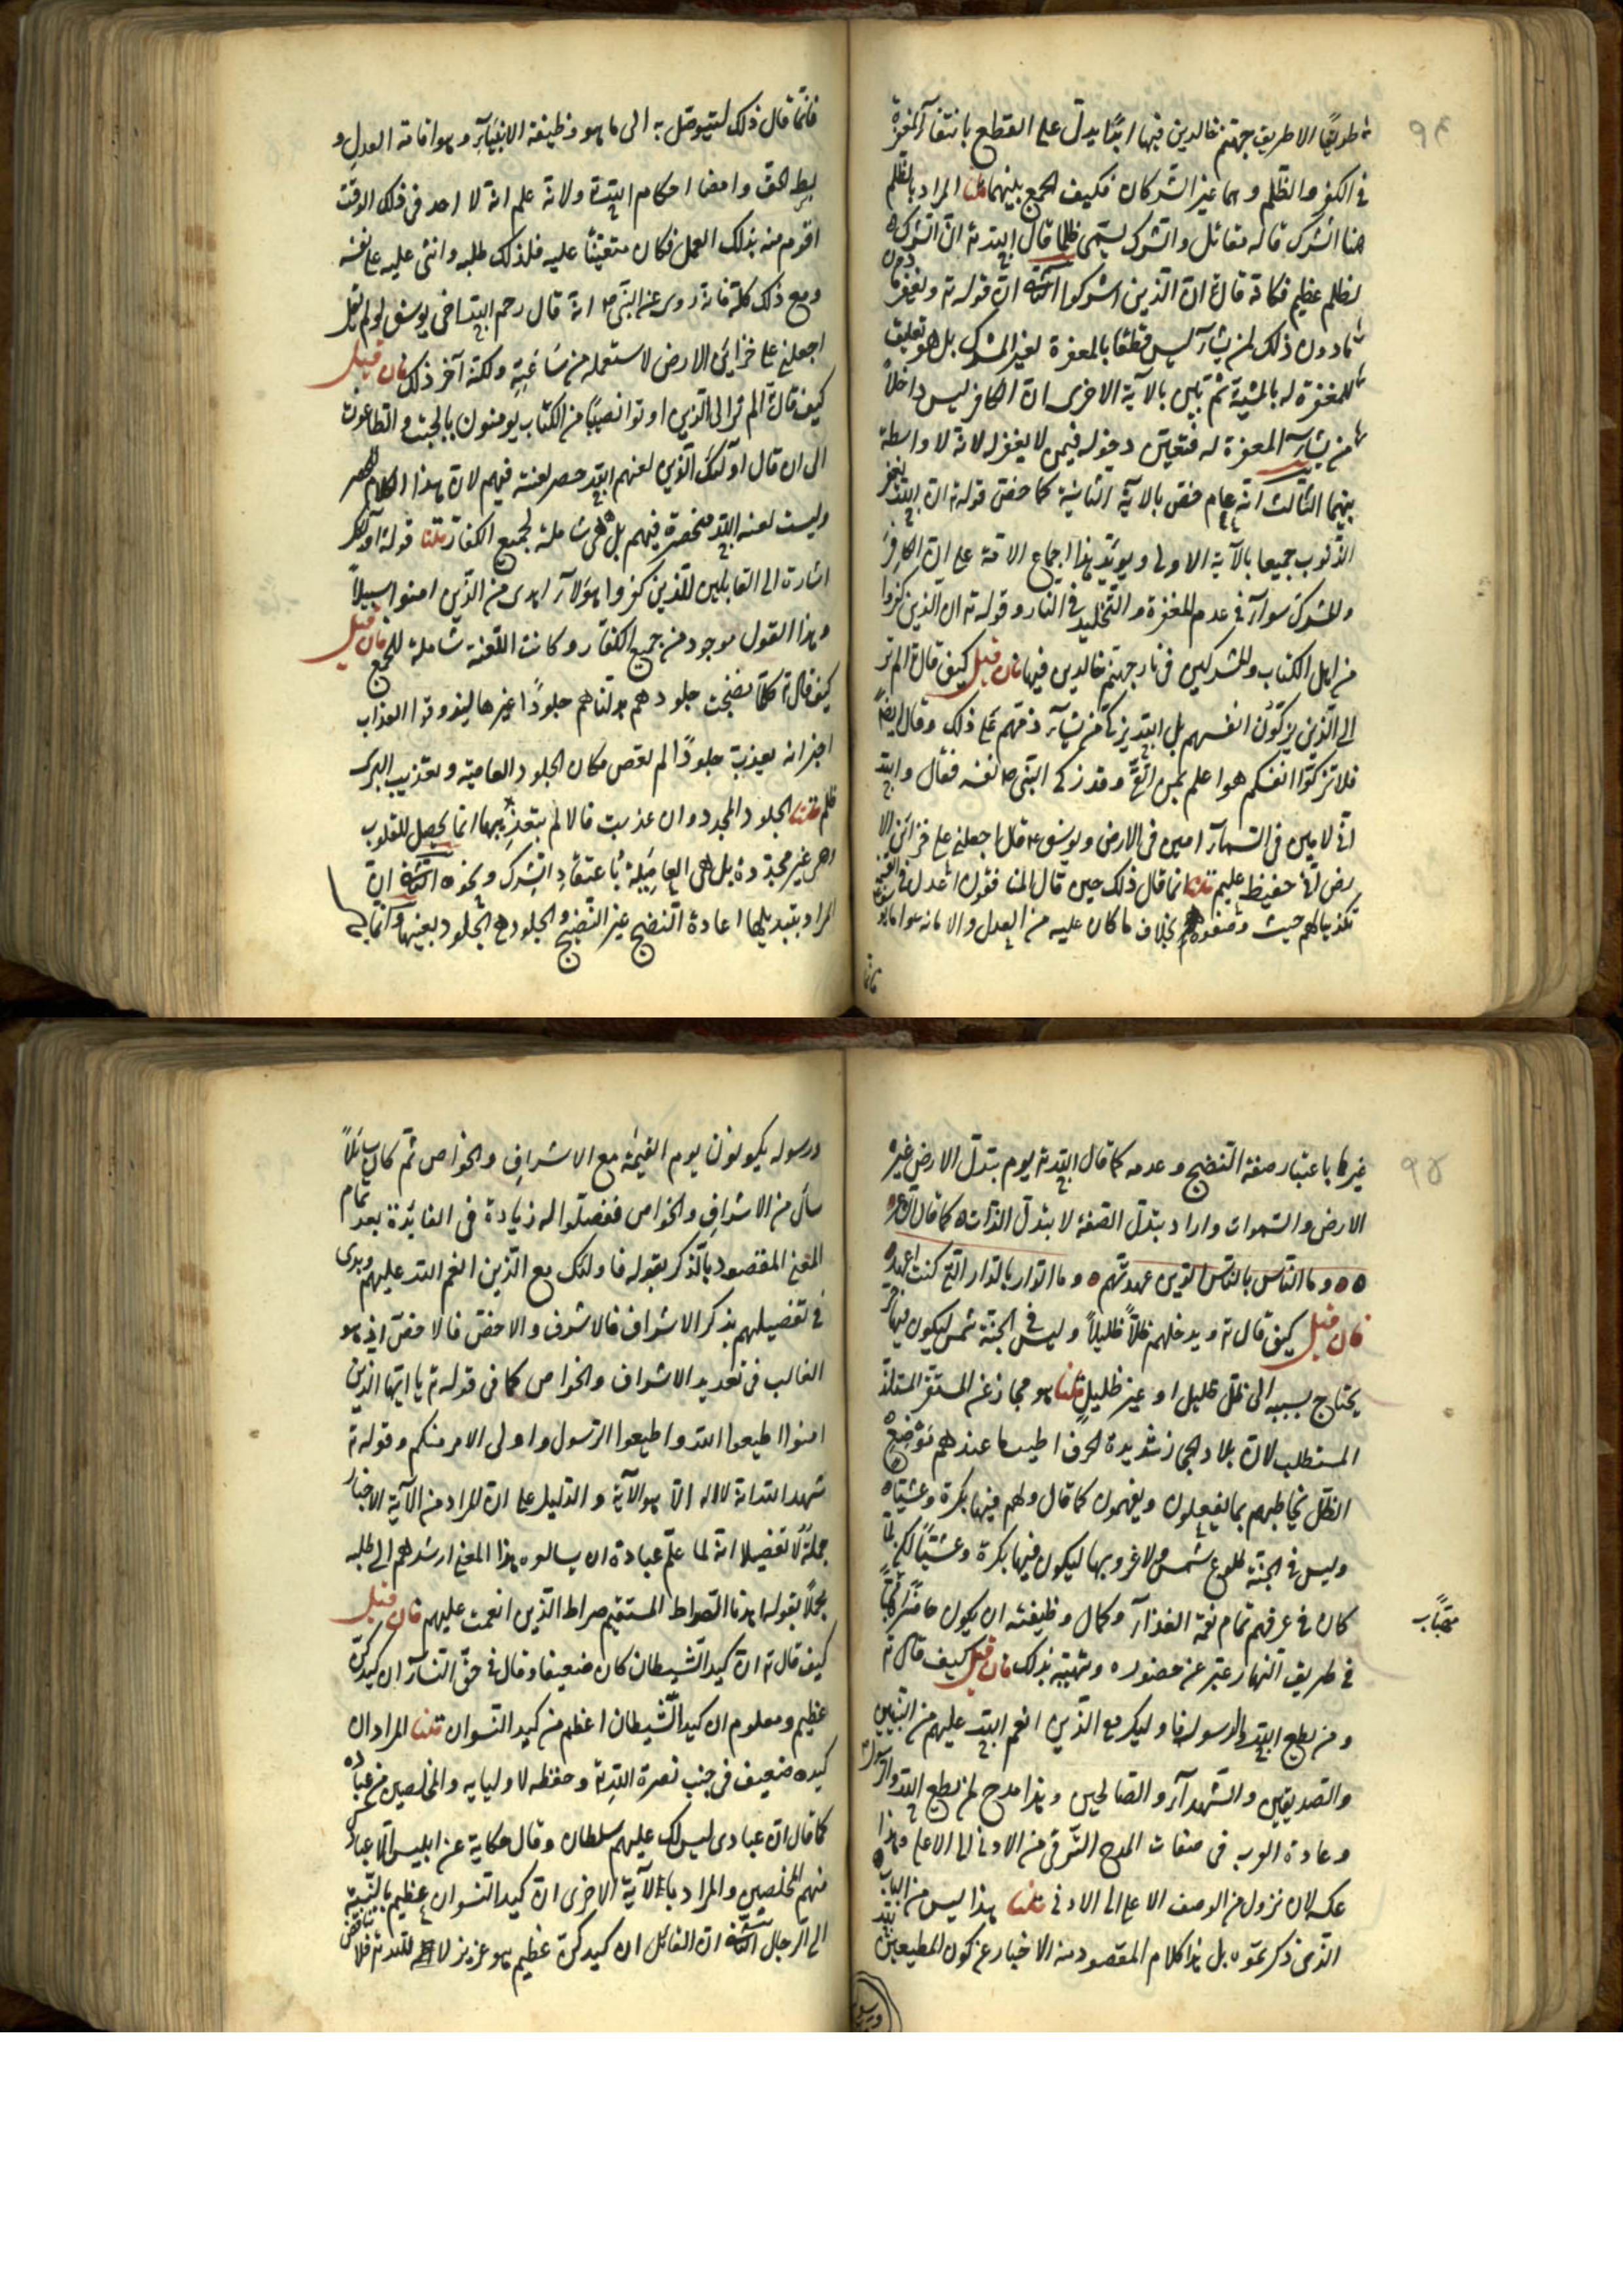 ٩٤
طريقا الا طريق جهنم خالدين فيها ابدا يدل على القطع بانتفآء المغفرة
فى الكفر والظلم وهما غير الشرك فكيف الجمع بينهما قلنا المراد بالظلم
هنا الشرك قاله مقاتل والشرك يسمى ظلما قال الله تع ان الشرك
لظلم عظيم فكانه قال ان الذين اشركوا الثانى ان قوله تع ويغفر ما دون
ما دون ذلك لمن يشآء ليس قطعا بالمغفرة لغير المشرك بل هو تعليق
للمغفرة له بالمشية ثم بين بالآية الاخرى ان الكافر ليس داخلا
من يشآء المغفرة له فتعين دخوله فيمن لا يغفر له لانه لا واسطة
بينهما الثالث انه عام خص بالآية الثانية كما خص قوله تع ان الله يغفر
الذنوب جميعا بالآية الاولى ويؤيد هذا اجماع الامة على ان الكافر
والمشرك سوآء فى عدم المغفرة والتخليد فى النار وقوله تع ان الذين كفروا
من اهل الكتاب والمشركين فى نار جهنم خالدين فيها فان قيل كيف قال تع الم تر
الى الذين يزكون انفسهم بل الله يزكى من يشآء ذمهم على ذلك وقال ايضا
فلا تزكوا انفسكم هو اعلم بمن اتقى وقد زكى النبى ص نفسه فقال والله
انى لامين فى السمآء امين فى الارض ويوسف ع قال اجعلنى على خزائن الا
رض انى حفيظ عليم قلنا انما قال ذلك حين قال المنافقون اعدل فى القسمة
تكذيبا لهم حيث وصفوه بخلاف ما كان عليه من العدل والامانة واما يو
فانما
فانما قال ذلك ليتوصل به الى ما هو وظيفة الانبيآء وهو اقامة العدل و
بسط الحق وامضا احكام الله تع ولانه علم انه لا احد فى ذلك الوقت
اقوم منه بذلك العمل فكان متعينا عليه فلذلك طلبه واثنى عليه على نفسه
ومع ذلك كله فانه روى عن النبى ص انه قال رحم الله اخى يوسف لو لم يقل
اجعلنى على خزائن الارض لاستعمله من ساعته ولكنه آخر ذلك فان قيل
كيف قال تع الم تر الى الذين اوتوا نصيبا من الكتاب يومنون بالجبت والطاغوت
الى ان قال اولئك الذين لعنهم الله حصر لعنته فيهم لان هذا الكلام للحصر
وليست لعنة الله منحصرة فيهم بل هى شاملة لجميع الكفار قلنا قوله اولئك
اشارة الى القايلين للذين كفروا هولآء اهدى من الذين امنوا سبيلا
وهذا القول موجود من جميع الكفار وكانت اللعنة شاملة للجميع فان قيل
كيف قال تع كلما نضجت جلودهم بدلناهم جلودا غيرها ليذوقوا العذاب
اخبر انه يعذب جلودا لم تعص مكان الجلود العاصية وتعذيب البرى
ظلم قلنا الجلود المجددة وان عذبت فالالم بتعذيبها انما يحصل للقلوب
وهى غير مجددة بل هى العاملة باعتقاد الشرك ونحوه الثانى ان
المراد بتبديلها اعادة النضج غير النضج والجلود هى الجلود بعينها وانما
٩٥
غيرها باعتبار صفة النضج وعدمه كما قال الله تع يوم تبدل الارض غير
الارض والسموات واراد تبدل الصفة لا تبدل الذات كما قال الشاعر
وما الناس بالناس الذين عهدتهم وما الدار بالدار التى كنت اعهد
فان قيل كيف قال تع ويدخلهم ظلا ظليلا وليس فى الجنة شمس ليكون فيها حر
يحتاج بسببه الى ظل ظليل او غير ظليل قلنا هو مجاز عن المستقر المستلذ
المستطاب لان بلاد الحجاز شديدة الحر فاطيب ما عندهم موضع
الظل فخاطبهم بما يعقلون ويفهمون كما قال ولهم فيها بكرة وعشيا
وليس فى الجنة طلوع شمس ولا غروبها ليكون فيها بكرة وعشيا لكن لما
كان فى عرفهم تمام نعمة الغذآء وكمال وظيفته ان يكون حاضرا مهيأ
مهيأ
فى طريق النهار عبر عن حضوره وتهيئه بذلك فان قيل كيف قال تع
ومن يطع الله والرسول فاولئك مع الذين انعم الله عليهم من النبيين
والصديقين والشهدآء والصالحين وهذا مدح لمن يطع الله والرسول
وعادة العرب فى صفات المدح الترقى من الادنى الى الاعلى وهذا
عكسه لانه نزول من الوصف الاعلى الى الادنى قلنا هذا ليس من الباب
الذى ذكرتموه بل هذا كلام المقصود منه الاخبار عن كون المطيعين لله
ورسوله
ورسوله يكونون يوم القيمة مع الاشراف والخواص ثم كان سائلا
سأل من الاشراف والخواص ففصلوا له زيادة فى الفايدة بعد تمام
المعنى المقصود بالذكر بقوله فاولئك مع الذين انعم الله عليهم وبدى
فى تفصيلهم بذكر الاشراف فالاشرف والاخص فالاخص اذ هو
الغالب فى تعديد الاشراف والخواص كما فى قوله تع يا ايها الذين
امنوا اطيعوا الله واطيعوا الرسول واولى الامر منكم وقوله تع
شهد الله انه لا اله الا هو الآية والدليل على ان المراد من الآية الاخبار
جملة لا تفصيلا انه لما علم عباده ان يسالوه هذا المعنى ارشدهم الى طلبه
مجملا بقوله اهدنا الصراط المستقيم صراط الذين انعمت عليهم فان قيل
كيف قال تع ان كيد الشيطان كان ضعيفا وقال فى حق النسآء ان كيدكن
عظيم ومعلوم ان كيد الشيطان اعظم من كيد النسوان قلنا المراد ان
كيده ضعيف فى جنب نصرة الله تع وحفظه لاوليايه والمخلصين من عباده
كما قال ان عبادى ليس لك عليهم سلطان وقال حكاية عن ابليس الا عبادك
منهم المخلصين والمراد بالآية الاخرى ان كيد النسوان عظيم بالنسبة
الى الرجال الثانى ان القائل ان كيدكن عظيم هو عزيز لا الله تع فلا تناقض